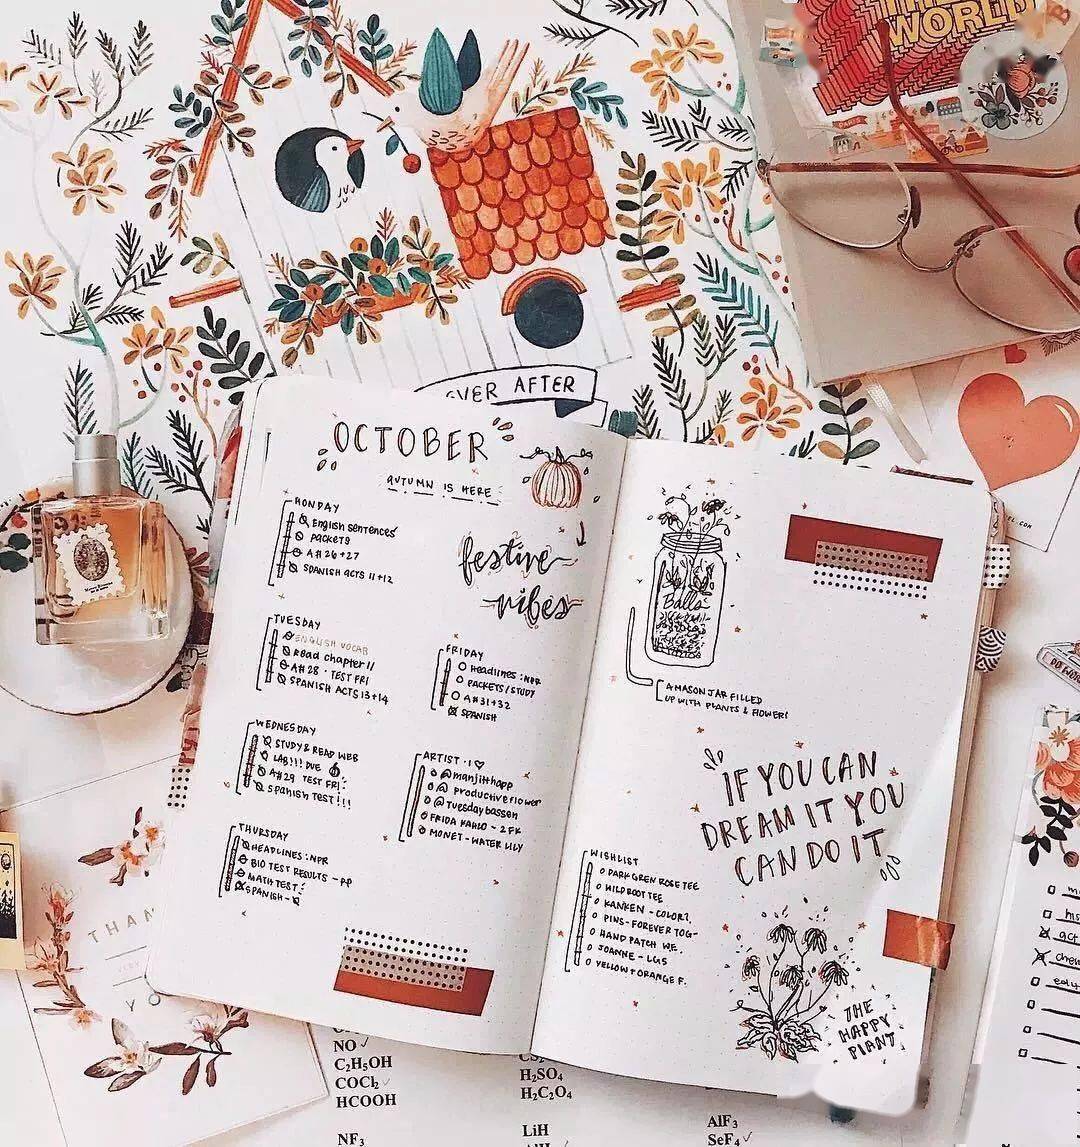 WORLD
PARIS
EVER AFTER
OCTOBER
AUTUMN IS HERE
MONDAY
English sentences
packets
A# 26+27
SPANISH ACTS 11+12
festive
vibes
TUESDAY
ENGLISH VOCAB
Read chapter 11
A# 28 - TEST FRI
SPANISH ACTS 13+14
WEDNESDAY
STUDY & READ WEB
LAB!!! DUE
A#29 TEST FRI.
Spanish TEST!!!
THURSDAY
HEADLINES: NPR
BIO TEST RESULTS - PP
MATH TEST!
SPANISH -
FRIDAY
Headlines: NPR
PACKETS/STUDY
A# 31+32
SPANISH
ARTIST
@manjitthapp
@productiveflower
@Tuesdaybassen
FRIDA KAHLO - 2 FK
MONET - WATER LILY
Balls
A MASON JAR FILLED
UP WITH PLANTS & FLOWERS
IF YOU CAN
DREAM IT YOU
CAN DO IT
WISHLIST
DARK GREN ROSE TEE
WILDROOT TEE
KANKEN - COLOR?
PINS - FOREVER TOG-
HAND PATCH WE.
JOANNE - LGS
YELLOW + ORANGE F.
THE
HAPPY
PLANT
THAN
YO
NO
C₂H₅OH
COCl₂
HCOOH
NF₃
H₂SO₄
H₂C₂O₄
LiH
AlF₃
SeF₄
his
act
chem